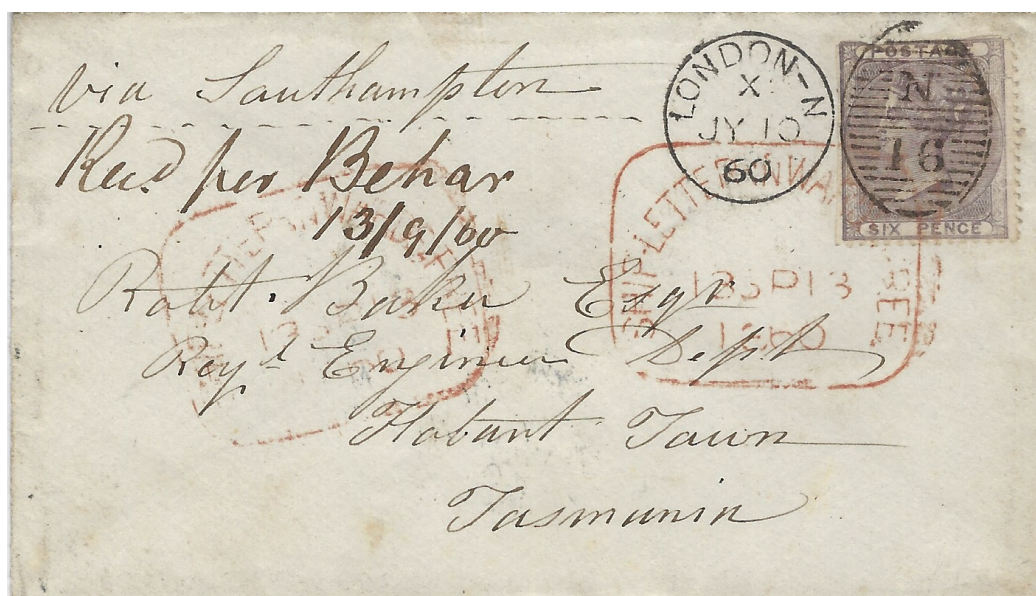 via Southampton
Recd per Behar
13/9/60
Robt. Baker Esqr
Royl Engineer Dept
Hobart Town
Tasmania
LONDON-N
X
JY 10
60
POSTAGE
N
16
SIX PENCE
SHIP LETTER INWARDS FREE
13 SP 13
1860